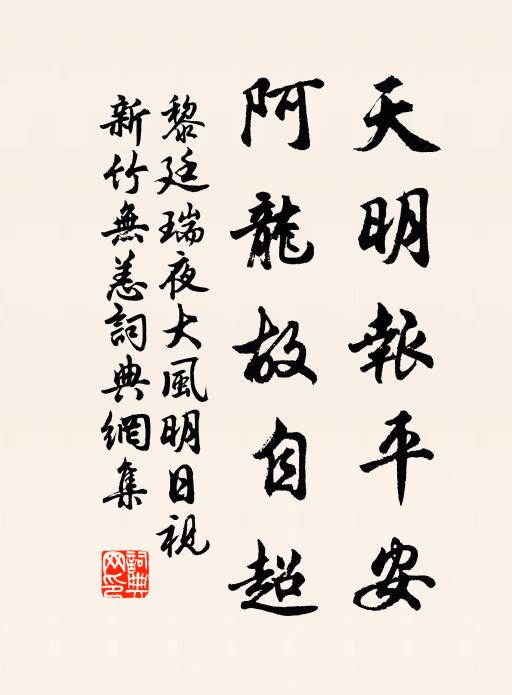 天明報平安
阿龍故自超
黎廷瑞夜大風明日視
新竹無恙詞典網集
詞典網印